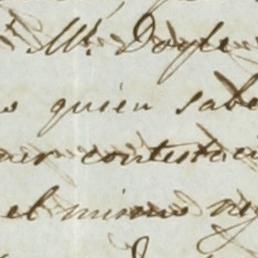 Mr. Doyle
quien sabe
contestaci
el mismo neg